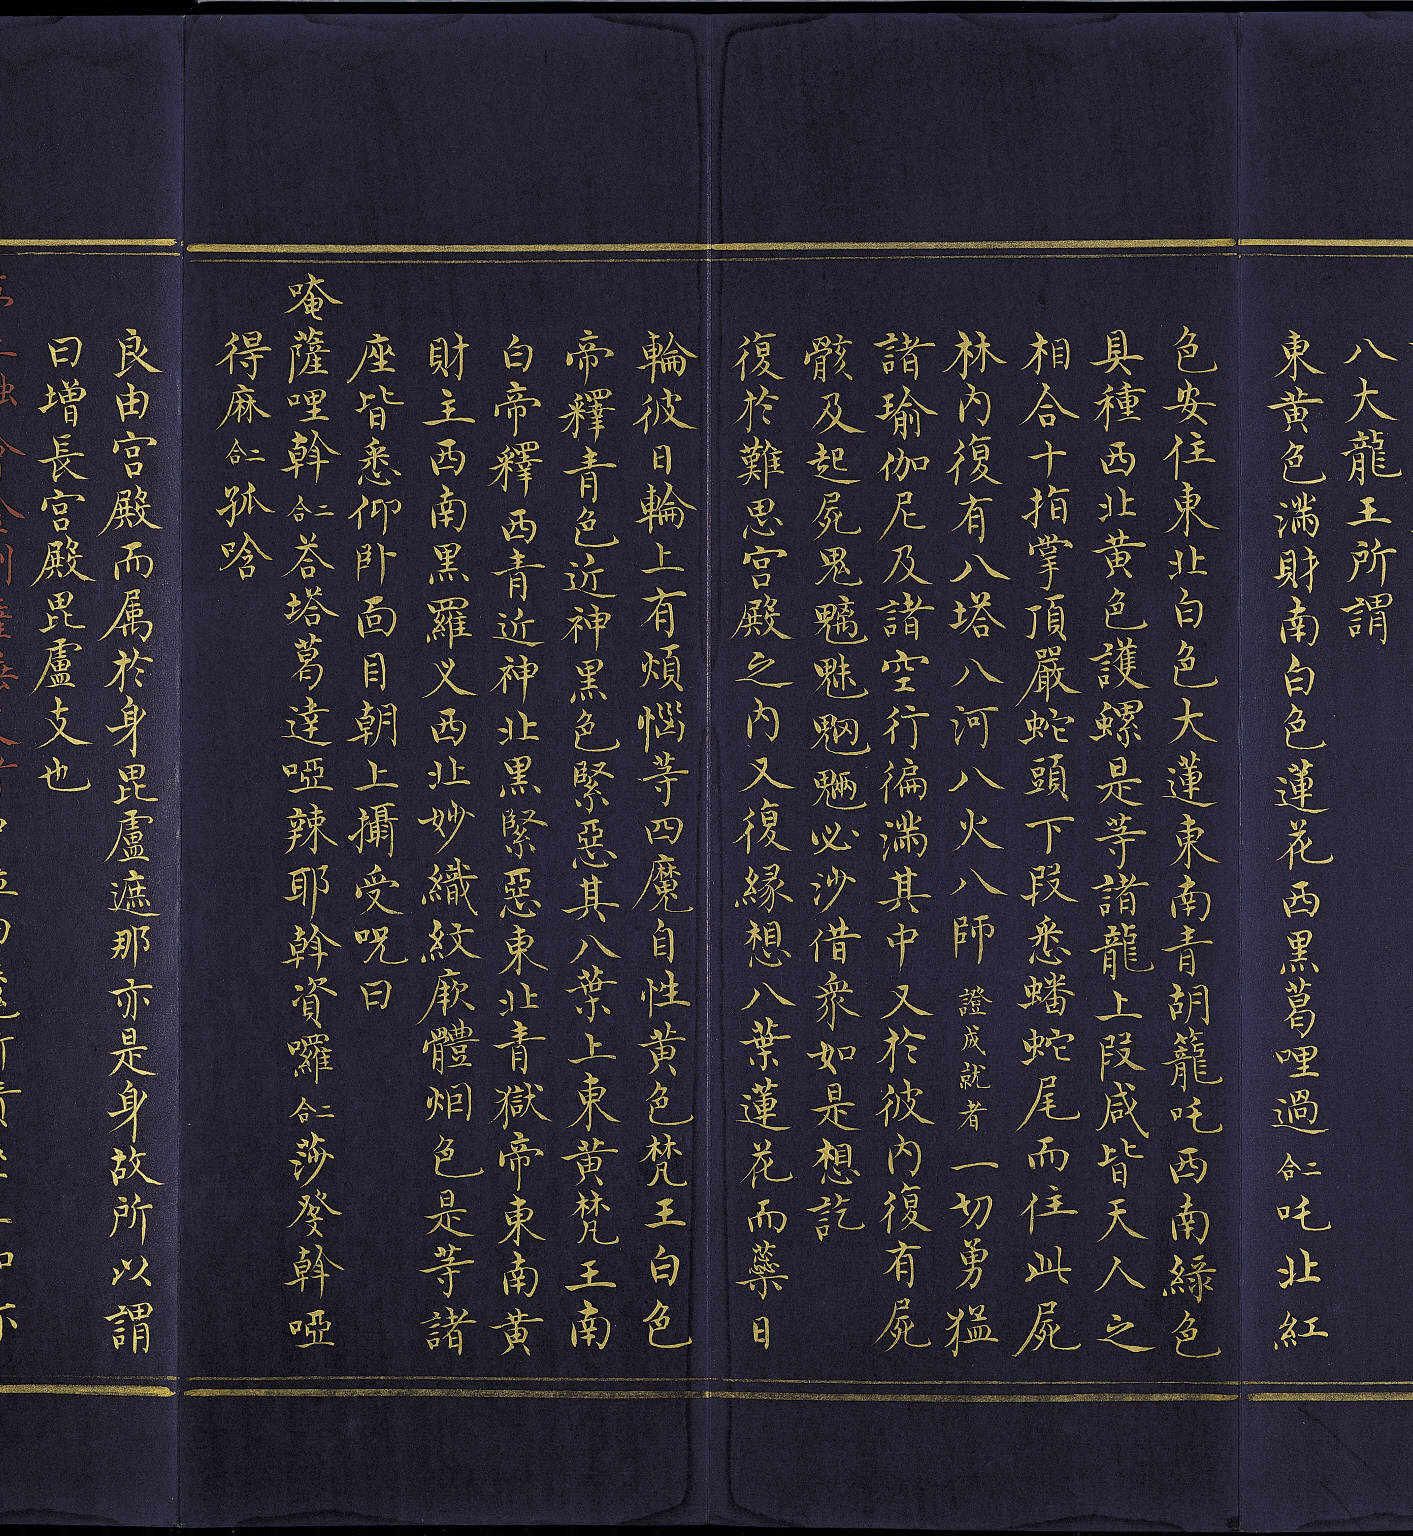 八大龍王所謂
東黃色滿財南白色蓮花西黑葛哩過二合吒北紅
色安住東北白色大蓮東南青胡籠吒西南綠色
具種西北黃色護螺是等諸龍上段咸皆天人之
相合十指掌頂嚴蛇頭下段悉蟠蛇尾而住此屍
林內復有八塔八河八火八師證成就者一切勇猛
諸瑜伽尼及諸空行徧滿其中又於彼內復有屍
骸及起屍鬼魑魅魍魎必沙借衆如是想訖
復於難思宮殿之內又復緣想八葉蓮花而蘂日
輪彼日輪上有煩惱等四魔自性黃色梵王白色
帝釋青色近神黑色緊惡其八葉上東黃梵王南
白帝釋西青近神北黑緊惡東北青獄帝東南黃
財主西南黑羅义西北妙織紋厥體烟色是等諸
座皆悉仰卧面目朝上攝受呪曰
唵薩哩斡二合荅塔葛達啞辣耶斡資囉二合莎癹斡啞
得麻二合孤唅
良由宮殿而属於身毘盧遮那亦是身故所以謂
曰增長宮殿毘盧支也